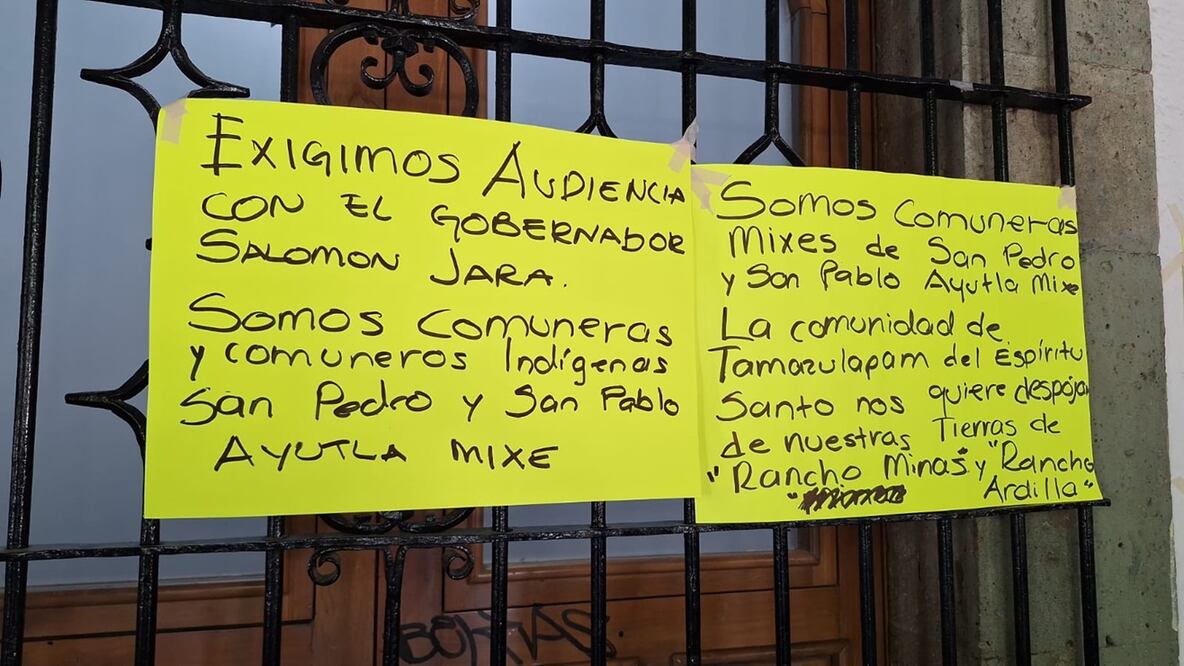 EXIGIMOS AUDIENCIA
CON EL GOBERNADOR
SALOMON JARA.
Somos Comuneras
y comuneros Indígenas
San Pedro y San Pablo
AYUTLA MIXE
Somos Comuneras
Mixes de San Pedro
y San Pablo Ayutla Mixe
La comunidad de
Tamazulapam del Espíritu
Santo nos quiere despojar
de nuestras Tierras de
"Rancho Minas" y "Rancho
Ardilla"